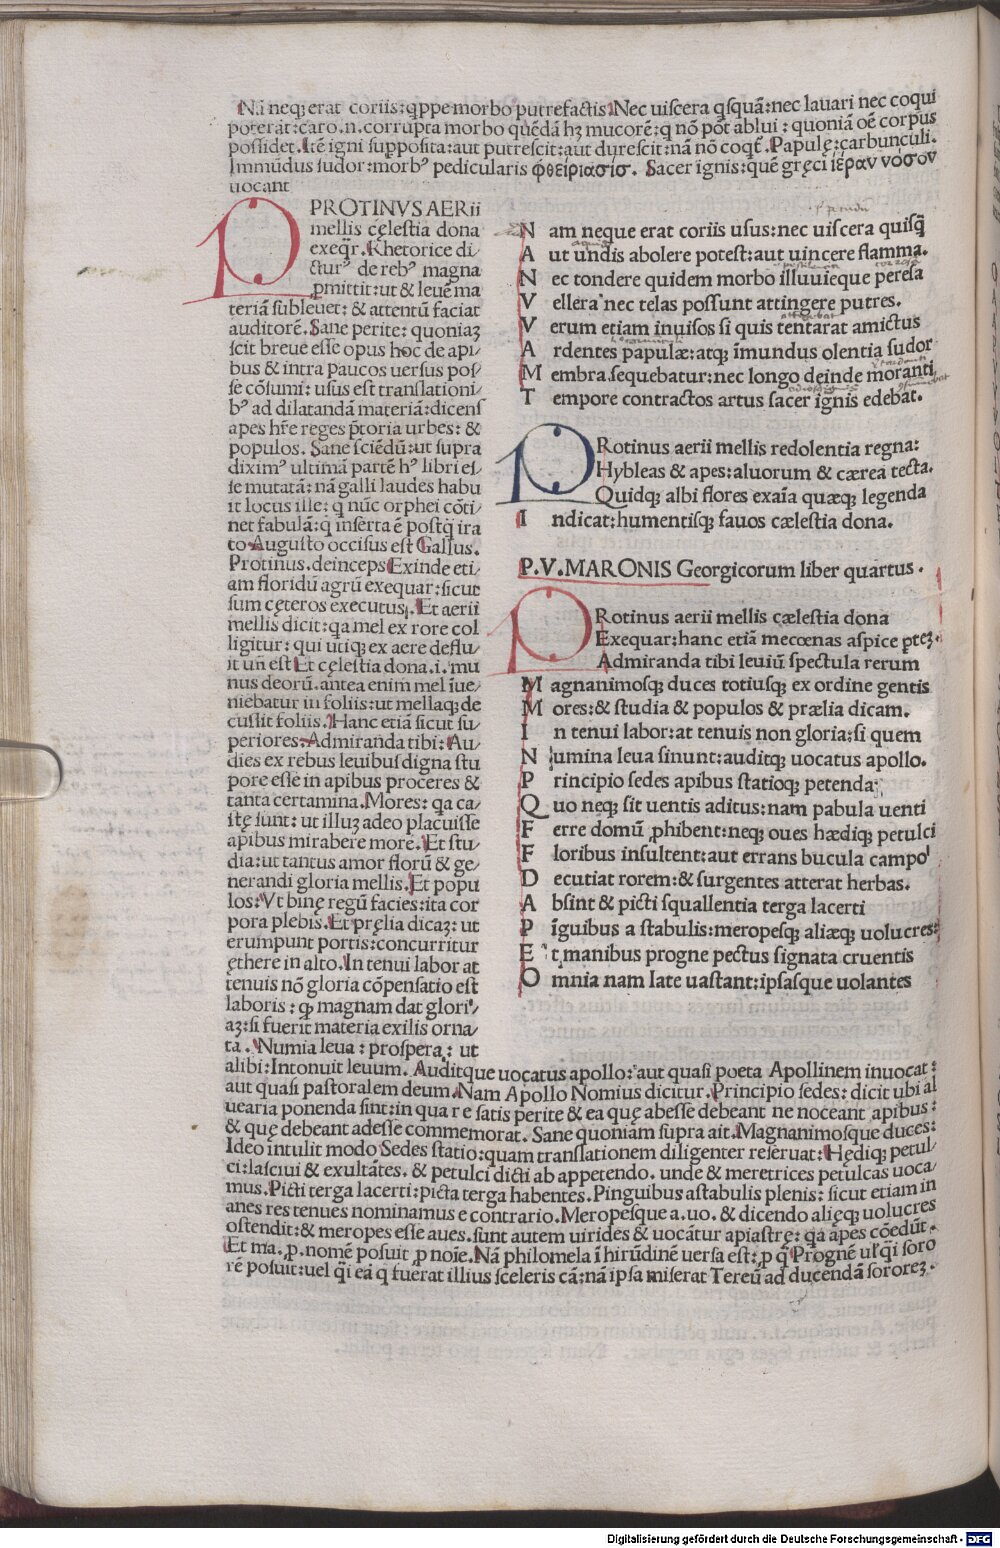 Nā neq; erat coriis: qppe morbo putrefactis. Nec uiscera qsquā: nec lauari nec coqui
poterāt: caro .n. corrupta morbo quēdā hȝ mucorē: q nō pōt ablui : quoniā oē corpus
possidet. Itē igni supposita: aut putrescit: aut durescit: nā nō coqt̄. Papulę: carbunculi.
Immūdus sudor: morbꝰ pedicularis φθείριασίσ. Sacer ignis: quē gręci ίέραν νόσον
uocant
PROTINVS AERii
mellis cęlestia dona
exeqr̄. Rhetorice di/
cturꝰ de rebꝰ magna
ꝓmittit: ut & leuē ma
teriā subleuet: & attentū faciat
auditorē. Sane perite: quoniaȝ
scit breue esse opus hoc de api/
bus & intra paucos uersus pos/
se cōsumi: usus est translationi/
bꝰ ad dilatandā materiā: dicens
apes hr̄e reges p̄toria urbes: &
populos. Sane sciēdū: ut supra
diximꝰ ultimā partē hꝰ libri es/
se mutatā: nā galli laudes habu
it locus ille: q nūc orphei cōti/
net fabulā: q̄ inserta ē postq̄ ira
to Augusto occisus est Gallus.
Protinus. deinceps Exinde eti/
am floridū agrū exequar: sicut
sum cęteros executus. Et aerii
mellis dicit: qa mel ex rore col
ligitur: qui utiq; ex aere deflu/
it un̄ est Et cęlestia dona .i. mu
nus deorū. antea enim mel īue/
niebatur in foliis: ut mellaq; de
cussit foliis. Hanc etiā sicut su/
periores. Admiranda tibi: Au/
dies ex rebus leuibus digna stu
pore esse in apibus proceres &
tanta certamina. Mores: qa ca/
stę sunt: ut illuȝ adeo placuisse
apibus mirabere morē. Et stu/
dia: ut tantus amor florū & ge/
nerandi gloria mellis. Et popu
los: Vt binę regū facies: ita cor
pora plebis. Et pręlia dicaȝ: ut
erumpunt portis: concurritur
ęthere in alto. In tenui labor at
tenuis nō gloria cōpensatio est
laboris : qȝ magnam dat glori/
aȝ: si fuerit materia exilis orna/
ta. Numia leua : prospera : ut
alibi: Intonuit leuum. Auditque uocatus apollo: aut quasi poeta Apollinem inuocat:
aut quasi pastoralem deum. Nam Apollo Nomius dicitur. Principio sedes: dicit ubi al
uearia ponenda sint: in qua re satis perite & ea quę abesse debeant ne noceant apibus:
& quę debeant adesse commemorat. Sane quoniam supra ait. Magnanimosque duces:
Ideo intulit modo Sedes statio: quam translationem diligenter reseruat: Hędiq; petul/
ci: lasciui & exultātes. & petulci dicti ab appetendo. unde & meretrices petulcas uoca/
mus. Picti terga lacerti: picta terga habentes. Pinguibus astabulis plenis: sicut etiam in
anes res tenues nominamus e contrario. Meropesque a. uo. & dicendo alięq; uolucres
ostendit: & meropes esse aues. sunt autem uirides & uocātur apiastrę: qa apes cōedūt.
Et ma. ꝓ. nomē posuit ꝓ noīe. Nā philomela ī hirūdinē uersa est: ꝓ q̄ Prognē ul̄ q̄i soro
rē posuit: uel q̄i ea q̄ fuerat illius sceleris cā: nā ipsa miserat Tereū ad ducendā sororeȝ.
N am neque erat coriis usus: nec uiscera quisq̄
A ut undis abolere potest: aut uincere flamma.
N ec tondere quidem morbo illuuieque peresa
V ellera nec telas possunt attingere putres.
V erum etiam inuisos si quis tentarat amictus
A rdentes papulæ: atq; īmundus olentia sudor
M embra sequebatur: nec longo deinde moranti
T empore contractos artus sacer ignis edebat.
PRotinus aerii mellis redolentia regna:
Hybleas & apes: aluorum & cærea tecta.
Quidq; albi flores exaīa quæq; legenda
I ndicat: humentisq; fauos cælestia dona.
P. V. MARONIS Georgicorum liber quartus.
PRotinus aerii mellis cælestia dona
Exequar: hanc etiā mecœnas aspice ꝑteȝ.
Admiranda tibi leuiū spectula rerum
M agnanimosq; duces totiusq; ex ordine gentis
M ores: & studia & populos & prælia dicam.
I n tenui labor: at tenuis non gloria: si quem
N umina leua sinunt: auditq; uocatus apollo.
P rincipio sedes apibus statioq; petenda:
Q uo neq; sit uentis aditus: nam pabula uenti
F erre domū ꝓhibent: neq; oues hædiq; petulci
F loribus insultent: aut errans bucula campo
D ecutiat rorem: & surgentes atterat herbas.
A bsint & picti squallentia terga lacerti
P īguibus a stabulis: meropesq; aliæq; uolucres:
E t manibus progne pectus signata cruentis
O mnia nam late uastant: ipsasque uolantes
Digitalisierung gefördert durch die Deutsche Forschungsgemeinschaft - DFG